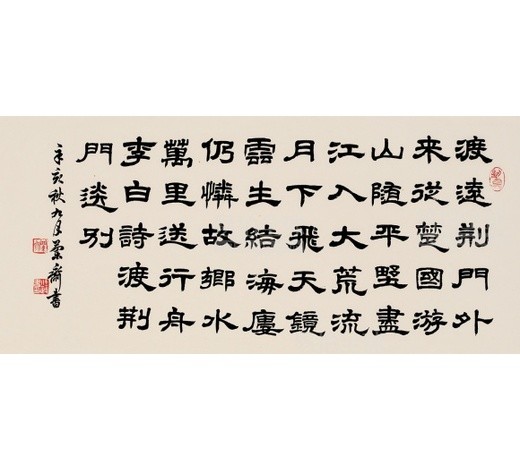 渡遠荆門外
来從楚國游
山随平野盡
江入大荒流
月下飛天鏡
雲生結海廔
仍憐故鄉水
萬里送行舟
李白詩渡荆
門送别
辛亥秋九月齋書